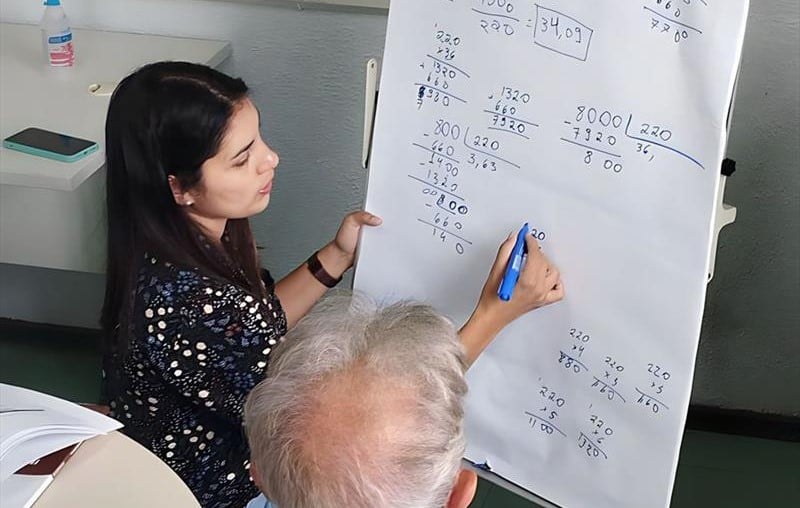 220 = 34,09
660
7700
220
×36
+ 1320
660
7980
+ 1320
660
7920
- 8000 220
7920 36,
800
- 800 220
660 3,63
- 1400
1320
00800
- 660
140
20
220
×4
880
220
×3
660
220
×3
660
220
×5
1100
220
×6
1320